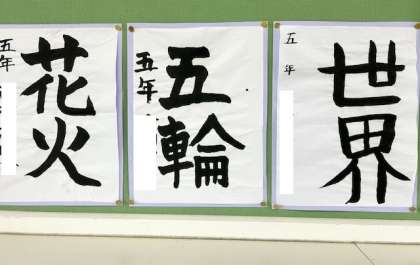 世界
五年
五輪
五年
花火
五年